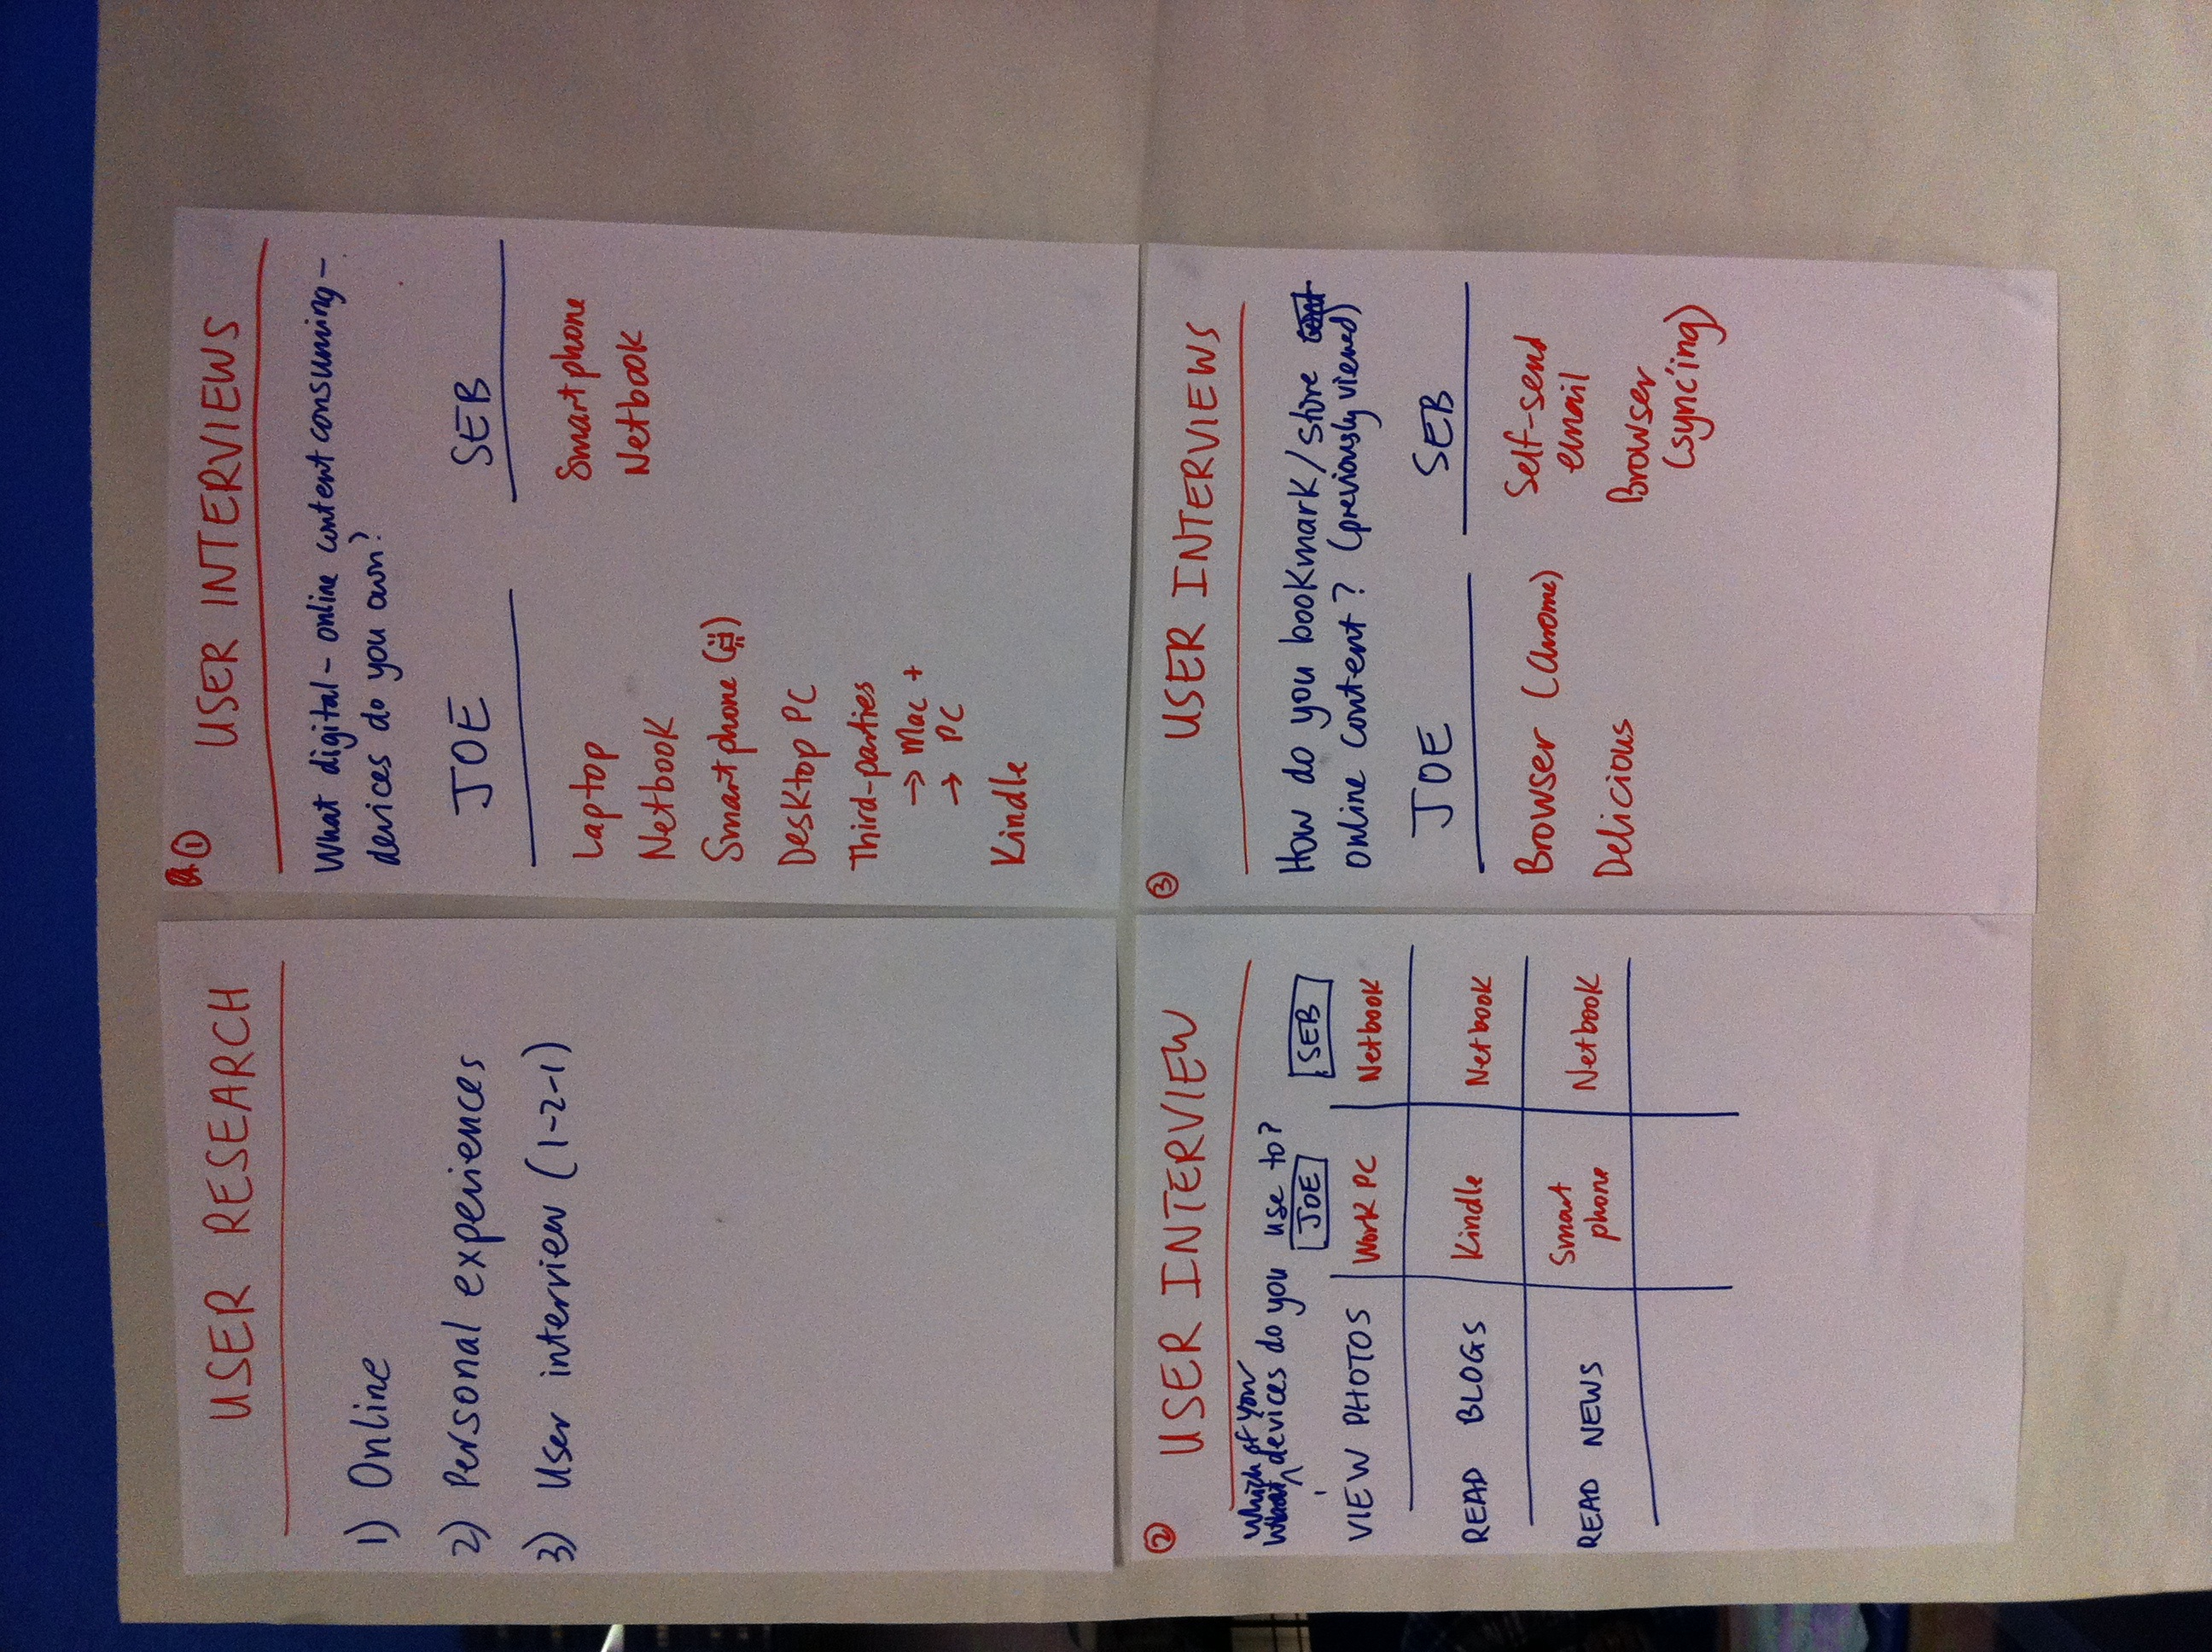 USER RESEARCH
1) Online
2) Personal experiences
3) User interview (1-2-1)
①
USER INTERVIEWS
What digital-online content consuming-
devices do you own?
JOE SEB
Laptop Smartphone
Netbook Netbook
Smartphone
Desktop PC
Third-parties
→ Mac +
→ PC
Kindle
②
USER INTERVIEW
Which of your
What devices do you use to?
JOE SEB
VIEW PHOTOS Work PC Netbook
READ BLOGS Kindle Netbook
READ NEWS Smart phone Netbook
③
USER INTERVIEWS
How do you bookmark/store
online content? (previously viewed)
JOE SEB
Browser (Chrome) Self-send
email
Delicious Browser
(syncing)